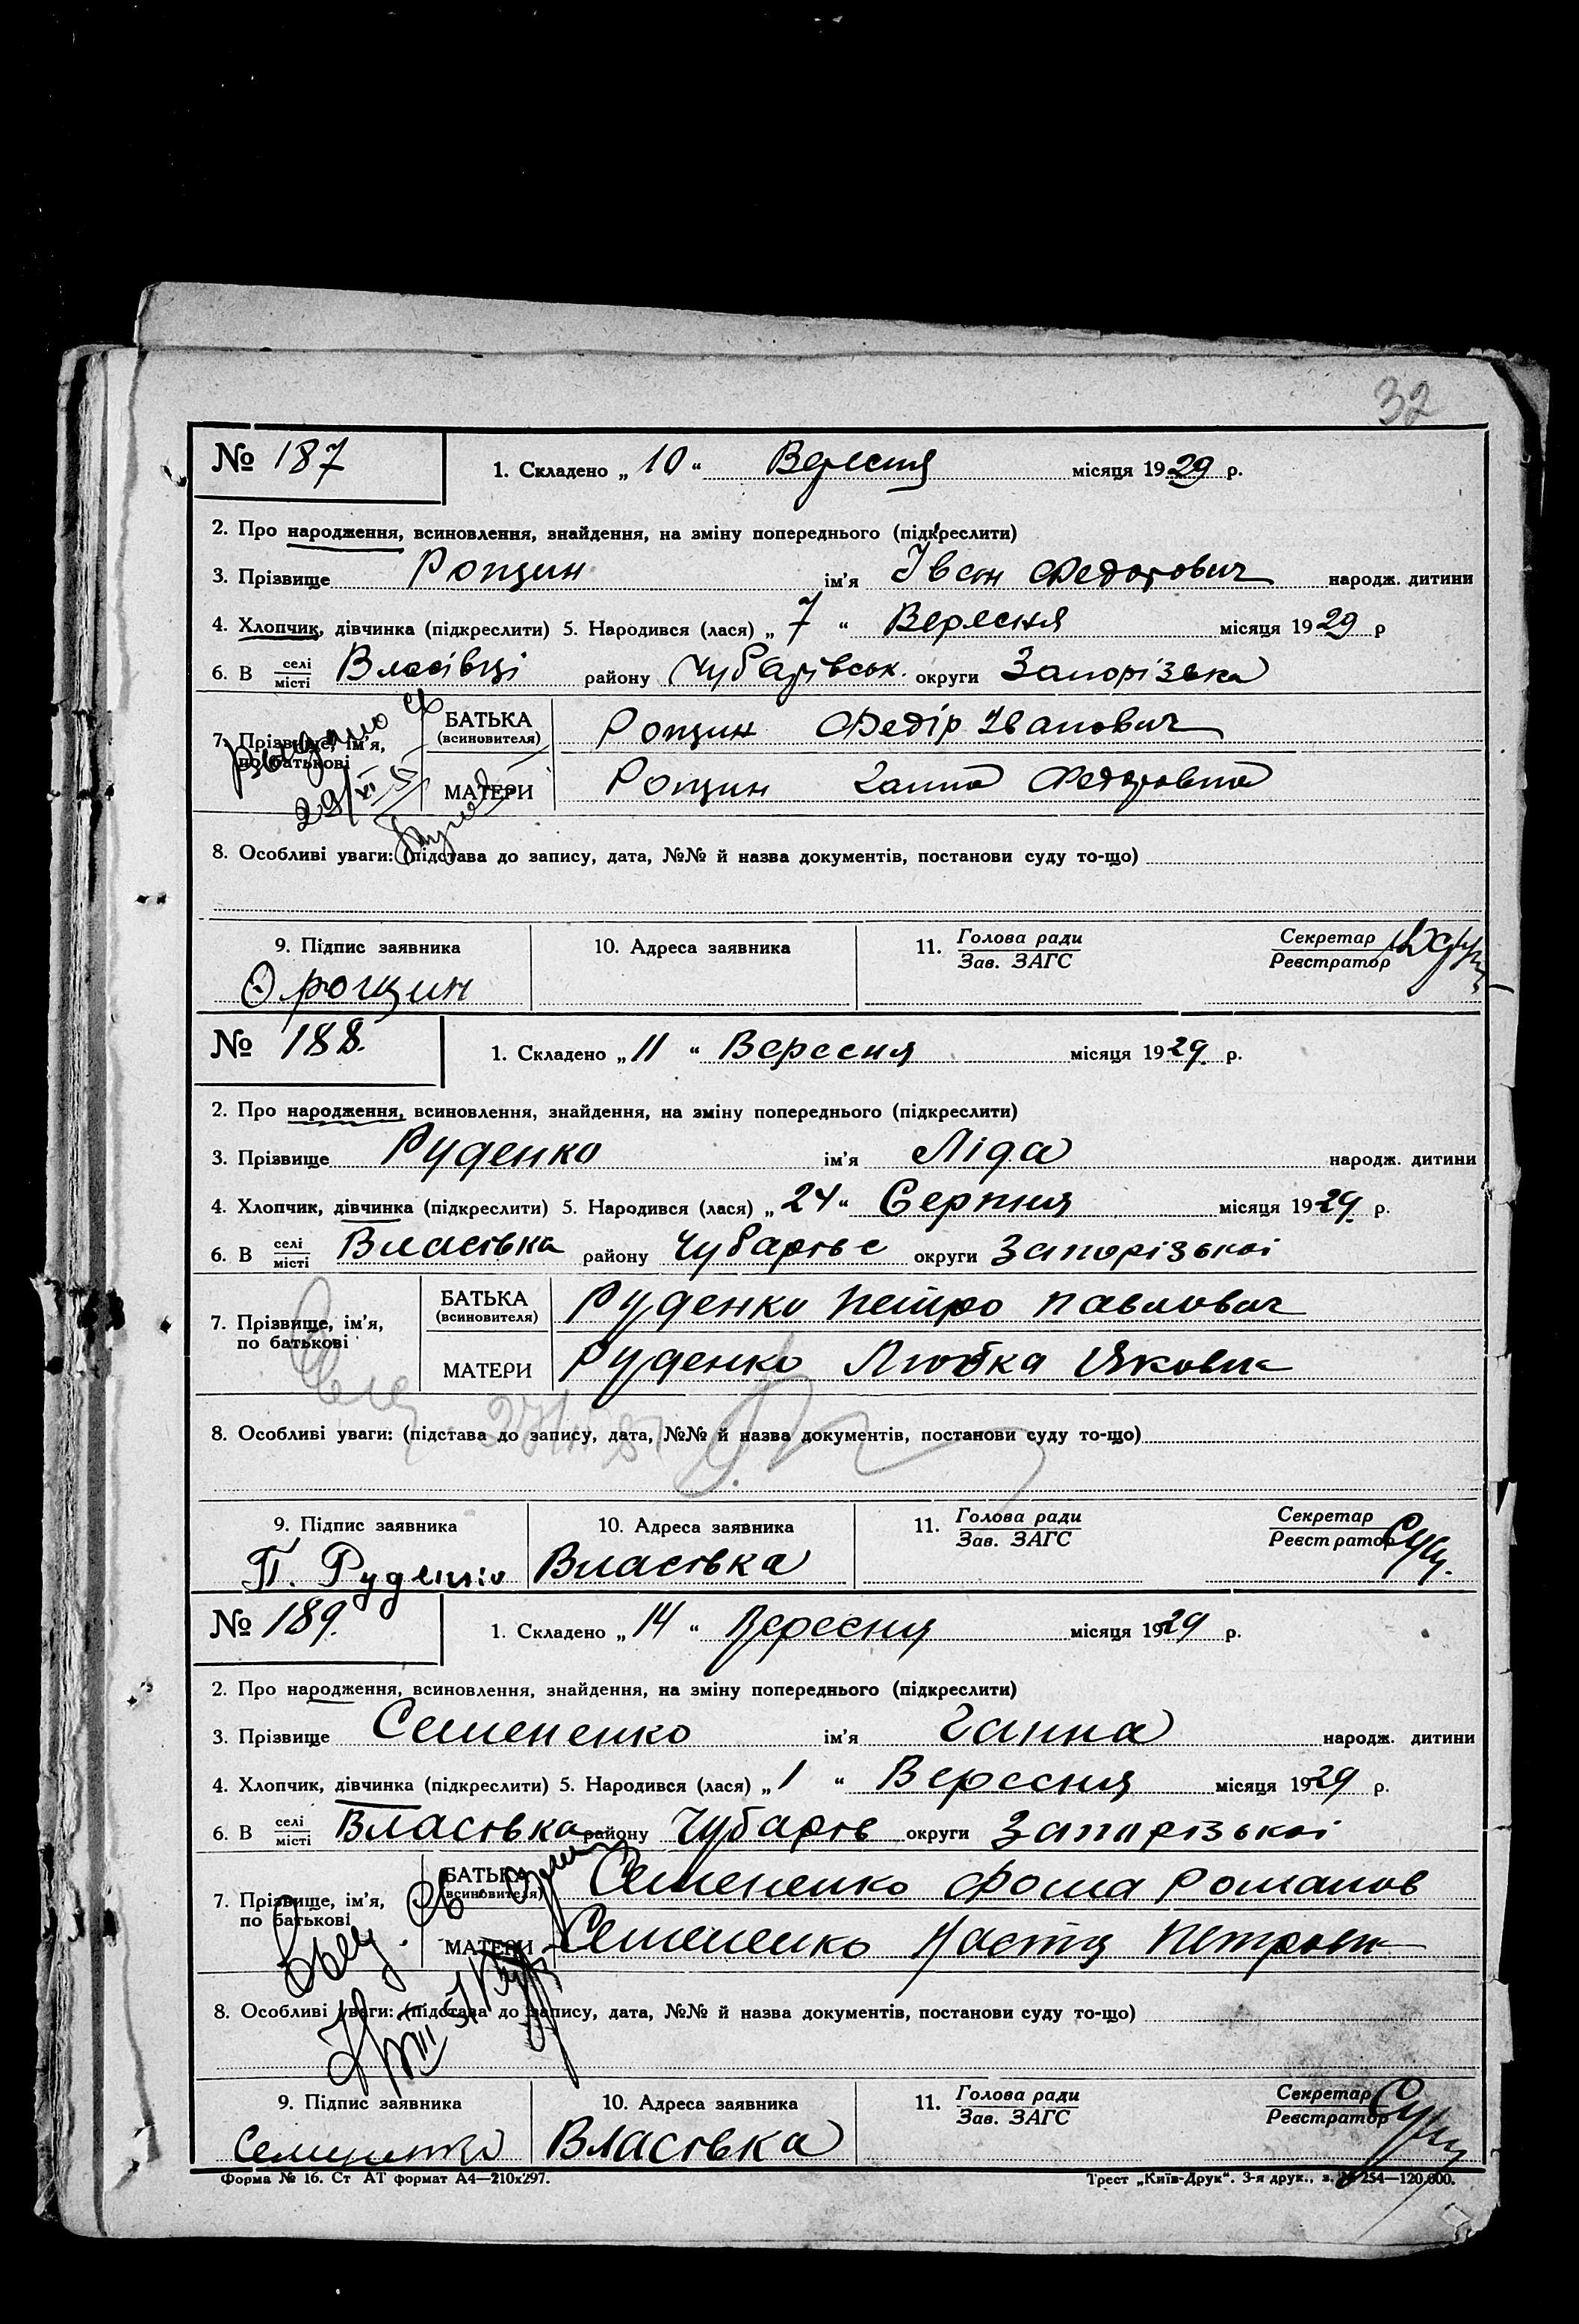 32
№ 187 1. Складено „ 10 “ Вересня місяця 1929 р.
2. Про народження, всиновлення, знайдення, на зміну попереднього (підкреслити)
3. Прізвище Рощин ім’я Іван Федорович народж. дитини
4. Хлопчик, дівчинка (підкреслити) 5. Народився (лася) „ 7 “ Вересня місяця 1929 р
6. В селі/місті Власівці району Чубарівськ. округи Запорізька
7. Прізвище, ім’я, по батькові
БАТЬКА (всиновителя) Рощин Федір Іванович
МАТЕРИ Рощин Ганна Федоровна
8. Особливі уваги: (підстава до запису, дата, №№ й назва документів, постанови суду то-що)
9. Підпис заявника 10. Адреса заявника 11. Голова ради/Зав. ЗАГС Секретар/Реєстратор
рощин
№ 188. 1. Складено „ 11 “ Вересня місяця 1929. р.
2. Про народження, всиновлення, знайдення, на зміну попереднього (підкреслити)
3. Прізвище Руденко ім’я Ліда народж. дитини
4. Хлопчик, дівчинка (підкреслити) 5. Народився (лася) „ 24 “ Серпня місяця 1929. р.
6. В селі/місті Власівка району Чубарівс округи Запорізької
7. Прізвище, ім’я, по батькові
БАТЬКА (всиновителя) Руденко Петро Павлович
МАТЕРИ Руденко Любка Яковл
8. Особливі уваги: (підстава до запису, дата, №№ й назва документів, постанови суду то-що)
9. Підпис заявника 10. Адреса заявника 11. Голова ради/Зав. ЗАГС Секретар/Реєстратор
П. Руденко Власівка
№ 189. 1. Складено „ 14 “ Вересня місяця 1929 р.
2. Про народження, всиновлення, знайдення, на зміну попереднього (підкреслити)
3. Прізвище Семененко ім’я Ганна народж. дитини
4. Хлопчик, дівчинка (підкреслити) 5. Народився (лася) „ 1 “ Вересня місяця 1929 р.
6. В селі/місті Власівка району Чубарів округи Запорізької
7. Прізвище, ім’я, по батькові
БАТЬКА (всиновителя) Семененко Фома Романов
МАТЕРИ Семененко Настя Петровн
8. Особливі уваги: (підстава до запису, дата, №№ й назва документів, постанови суду то-що)
9. Підпис заявника 10. Адреса заявника 11. Голова ради/Зав. ЗАГС Секретар/Реєстратор
Семененко Власівка
Форма № 16. Ст АТ формат А4—210х297. Трест „Київ-Друк“. 3-я друк., з. № 254—120.000.